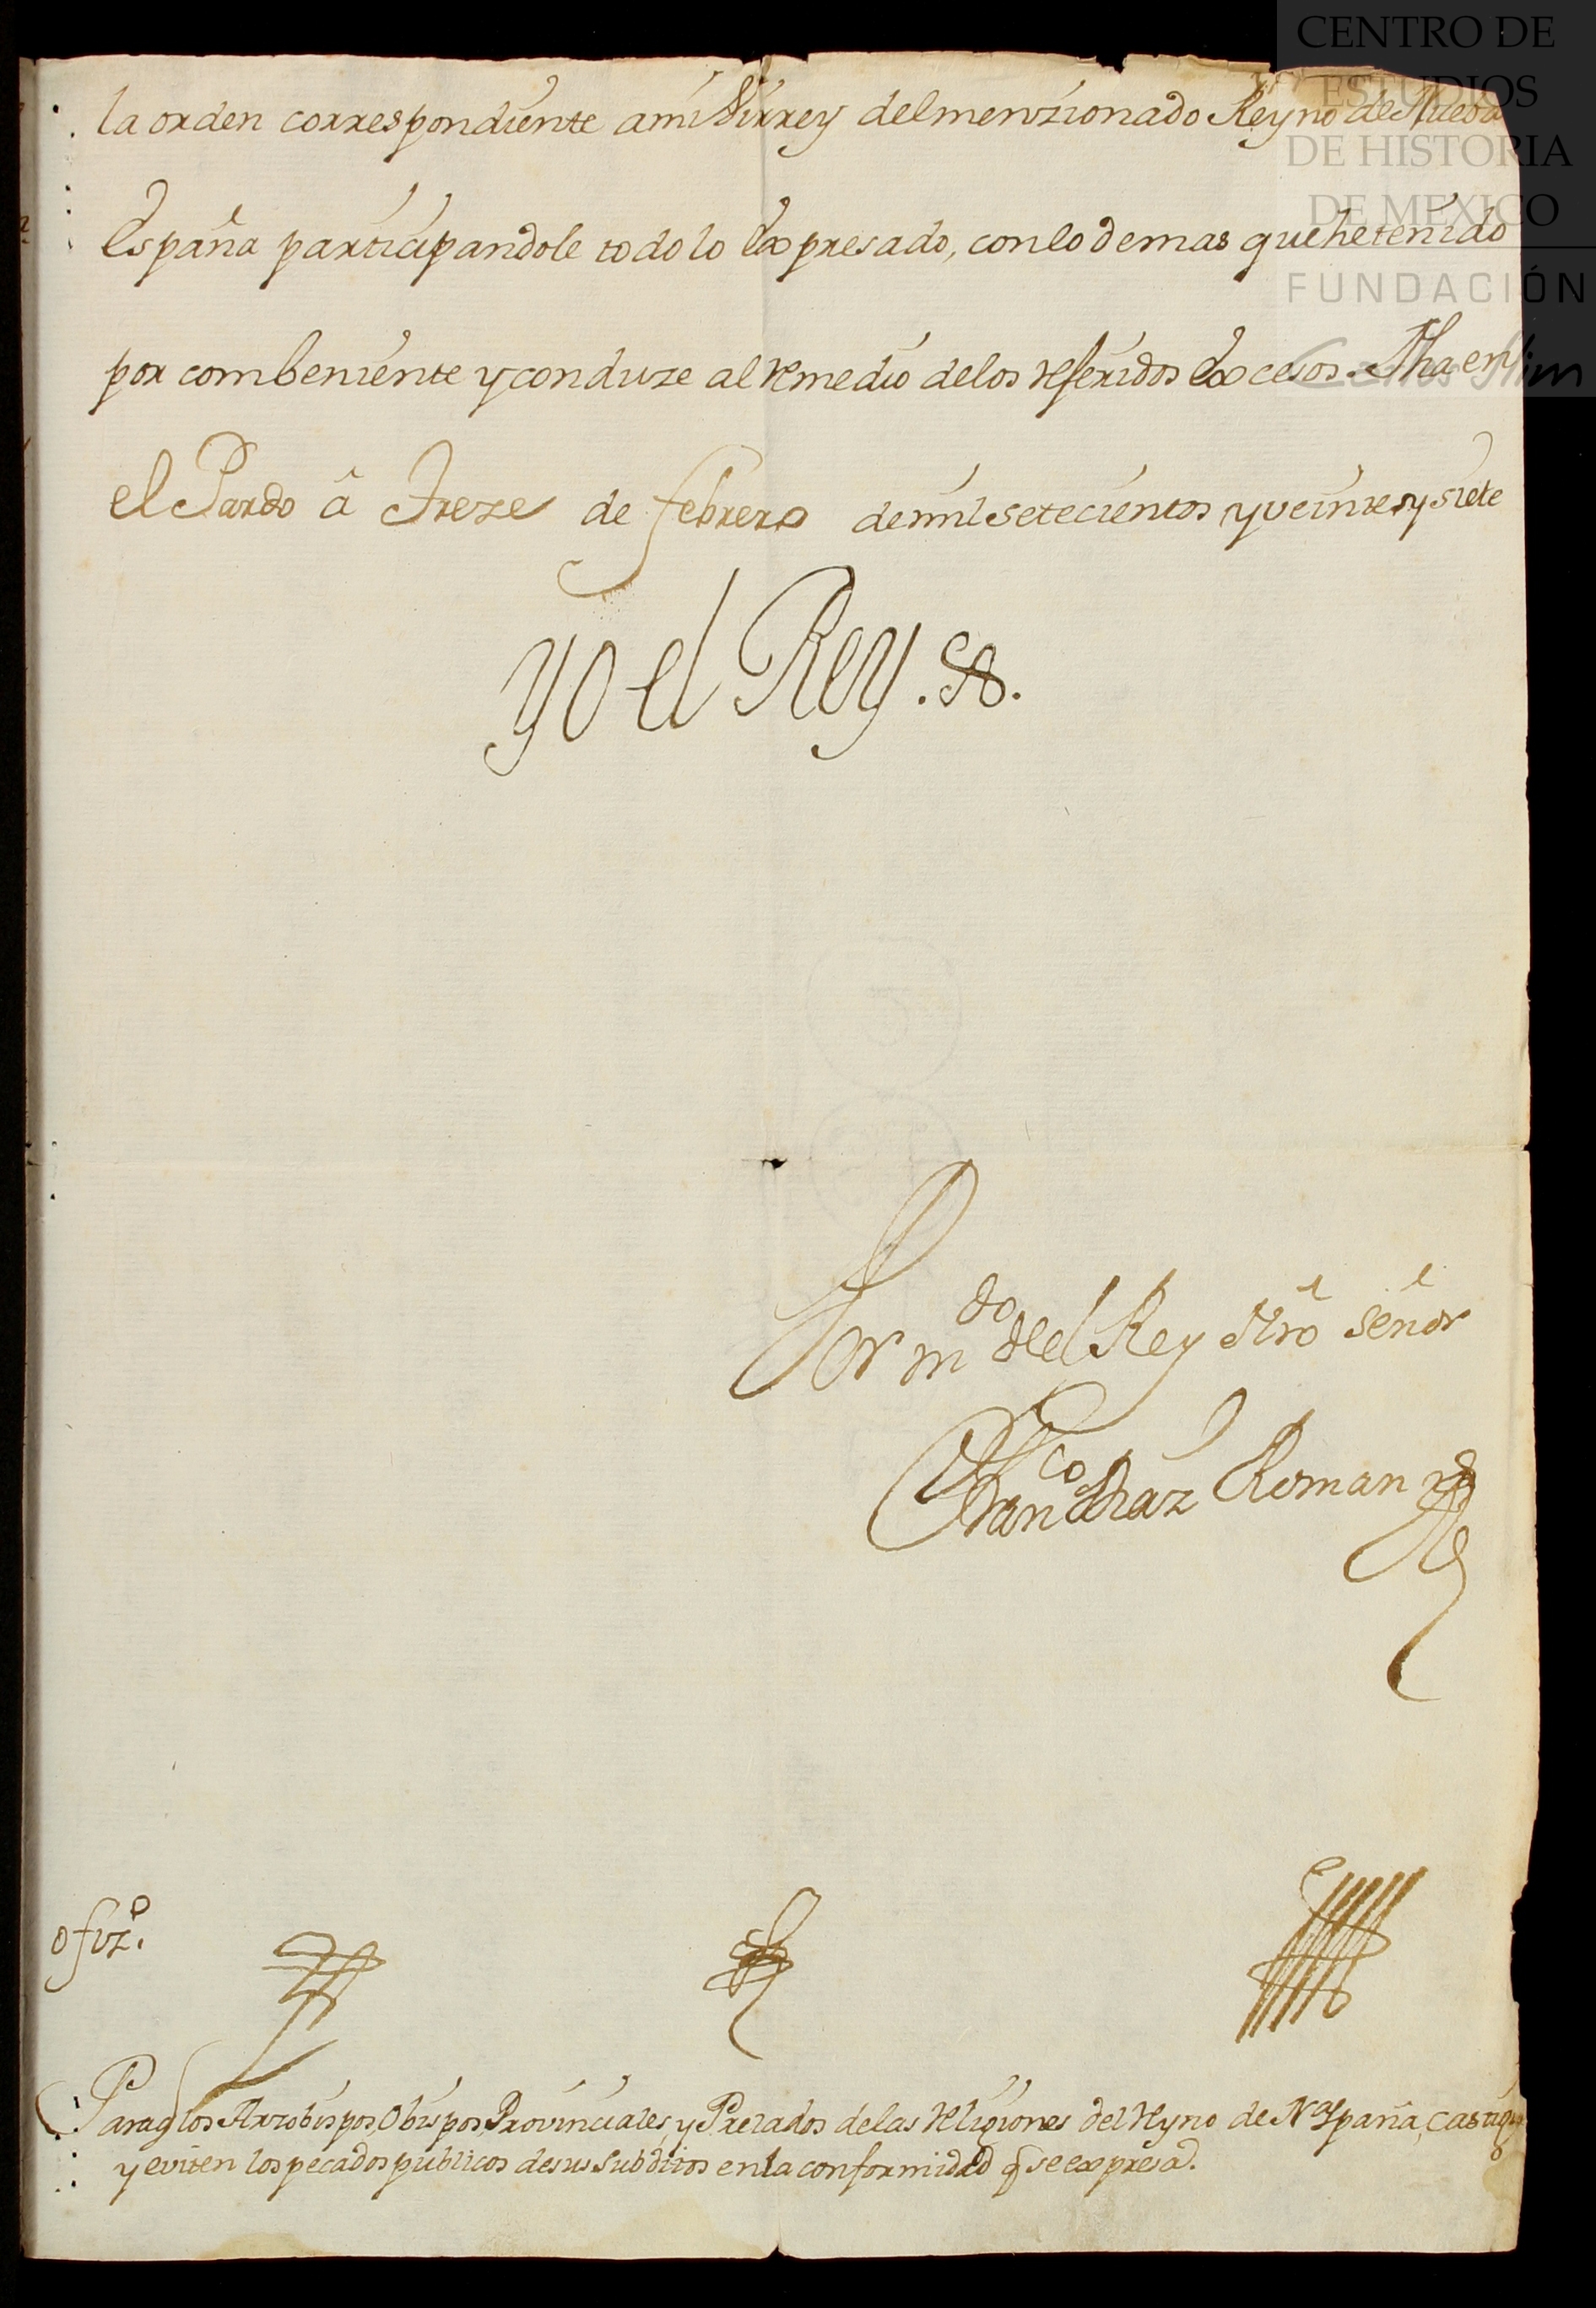 CENTRO DE
ESTUDIOS
DE HISTORIA
DE MEXICO
FUNDACIÓN
Carlos Slim
la orden correspondiente a mi Virrey del menzionado Reyno de Nueba
España participandole todo lo Expresado, con lo demas que he tenido
por combeniente y conduze al remedio de los referidos Excesos. Fha en
el Pardo â Treze de febrero de mil setecientos y veinte y siete
Yo el Rey.
Por mdo del Rey Nro Señor
Franco Diaz Roman
ofizo.
Para q los Arzobispos, Obispos, Provinciales, y Prelados de las Religiones del Reyno de Na España, castiguen
y eviten los pecados publicos de sus subditos en la conformidad q se expresa.